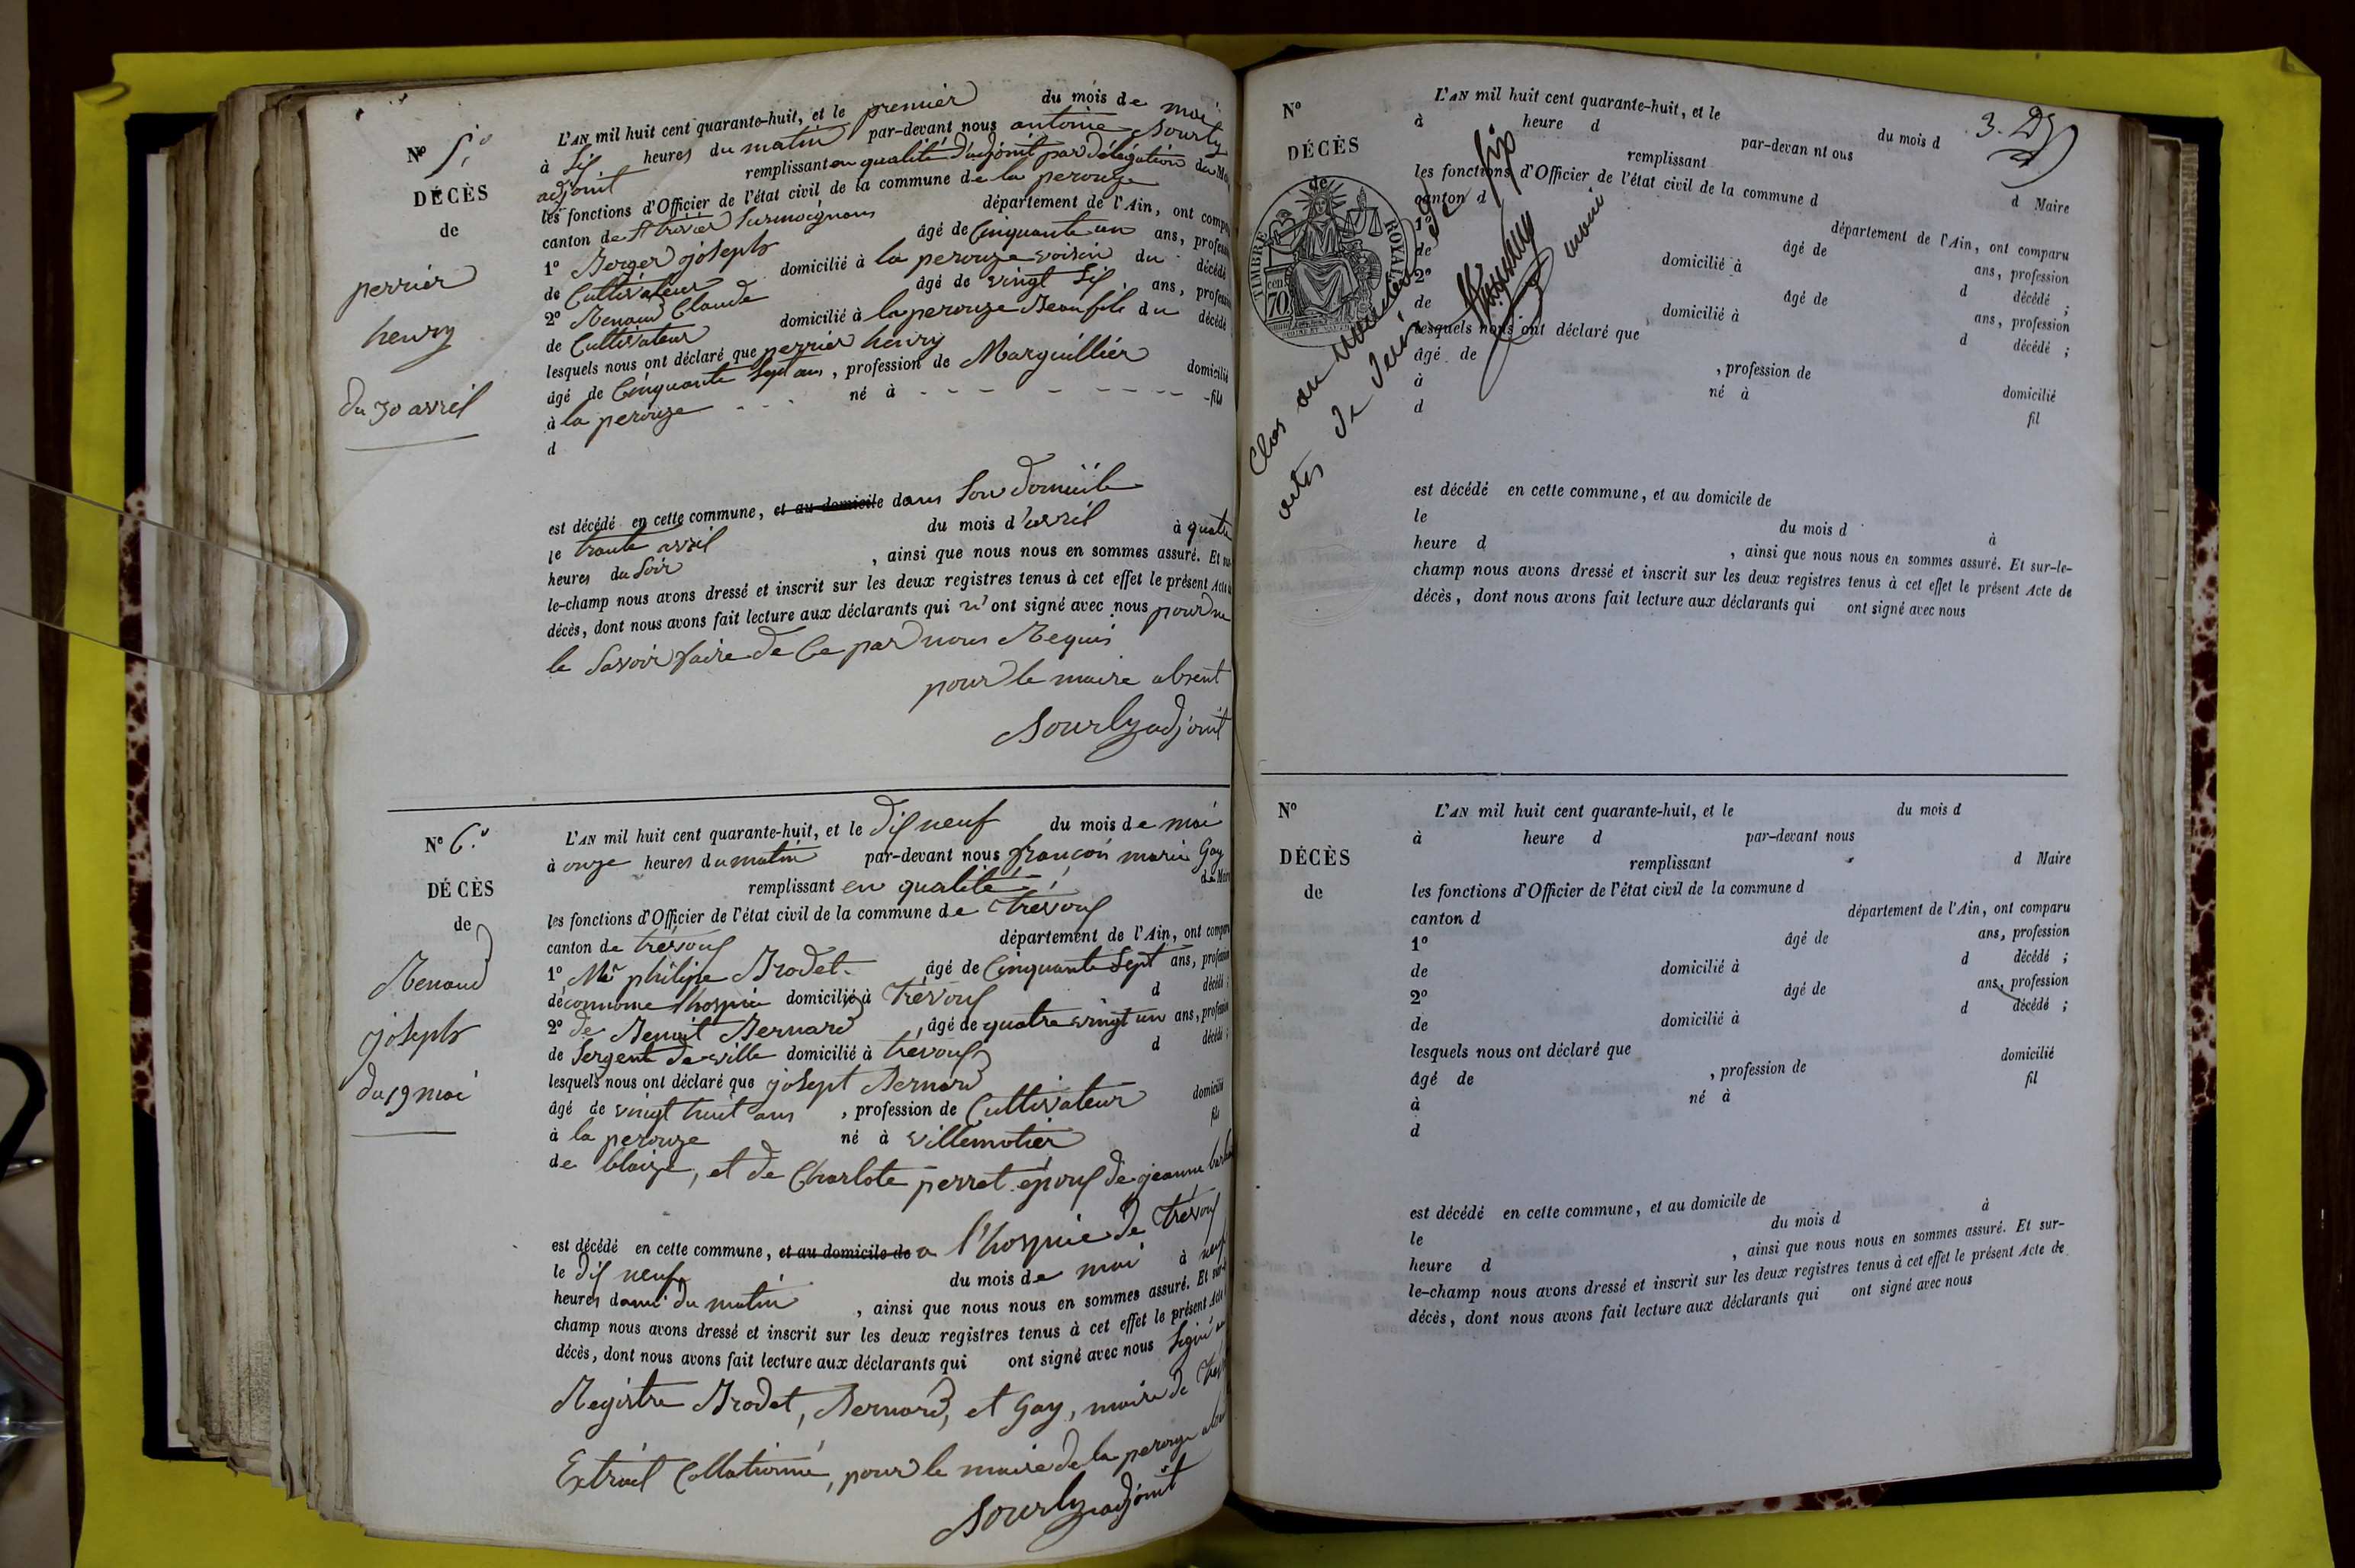 N° 5.°
DÉCÈS
de
perrier
henry
du 30 avril
L'AN mil huit cent quarante-huit, et le premier du mois de mai
à six heures du matin par-devant nous antoine Sourly
adjoint remplissant en qualité d'adjoint par délégation du
les fonctions d'Officier de l'état civil de la commune de la perouze
canton de St trivier Surmoignans département de l'Ain, ont
1° Berger joseph âgé de Cinquante un ans,
de Cultivateur domicilié à la perouze voisin du décédé
2° Renaud Claude âgé de vingt six ans,
de Cultivateur domicilié à la perouze Beaufils du décédé
lesquels nous ont déclaré que perrier henry
âgé de Cinquante Sept ans, profession de Marguillier domicilié
à la perouze - - - né à - - - - - - - fils
d
est décédé en cette commune, et au domicile dans Son domicile
le trante avril du mois d'avril à quatre
heures du Soir, ainsi que nous nous en sommes assuré. Et
le-champ nous avons dressé et inscrit sur les deux registres tenus à cet effet le présent Acte
décès, dont nous avons fait lecture aux déclarants qui n'ont signé avec nous pour ne
le Savoir faire de Ce par nous Requis
pour le maire absent
Sourly adjoint
N° 6.°
DÉCÈS
de
Renaud
joseph
du 19 mai
L'AN mil huit cent quarante-huit, et le dix neuf du mois de mai
à onze heures du matin par-devant nous françois marie Gay
remplissant en qualité de
les fonctions d'Officier de l'état civil de la commune de trévoux
canton de trévoux département de l'Ain, ont
1° Mr philipe Brodet âgé de Cinquante Sept ans,
déconnome l'hospice domicilié à trévoux d décédé;
2° de Benoit Bernard, âgé de quatre vingt un ans, profession
de Sergent de ville domicilié à trévoux d décédé;
lesquels nous ont déclaré que josept Bernard
âgé de vingt huit ans, profession de Cultivateur domicilié
à la perouze né à villemotier fils
de blaize, et de Charlote perret époux de jeanne
est décédé en cette commune, et au domicile de a l'hospice de trévoux
le dix neuf du mois de mai à neuf
heures du matin, ainsi que nous nous en sommes assuré. Et
champ nous avons dressé et inscrit sur les deux registres tenus à cet effet le présent Acte
décès, dont nous avons fait lecture aux déclarants qui ont signé avec nous Signé au
Registre Brodet, Bernard, et Gay, maire de
Extrait Collationné, pour le maire de la perouze
Sourly adjoint
N°
DÉCÈS
de
TIMBRE ROYAL
70
Clos au nombre de Six
actes de décès
maire
L'AN mil huit cent quarante-huit, et le du mois d
à heure d par-devan nt ous
remplissant d Maire
les fonctions d'Officier de l'état civil de la commune d
canton d département de l'Ain, ont comparu
1° âgé de ans, profession
de domicilié à d décédé ;
2° âgé de ans, profession
de domicilié à d décédé ;
lesquels nous ont déclaré que
âgé de , profession de domicilié
à né à fil
d
est décédé en cette commune, et au domicile de
le du mois d à
heure d , ainsi que nous nous en sommes assuré. Et sur-le-
champ nous avons dressé et inscrit sur les deux registres tenus à cet effet le présent Acte de
décès, dont nous avons fait lecture aux déclarants qui ont signé avec nous
N°
DÉCÈS
de
L'AN mil huit cent quarante-huit, et le du mois d
à heure d par-devant nous
remplissant d Maire
les fonctions d'Officier de l'état civil de la commune d
canton d département de l'Ain, ont comparu
1° âgé de ans, profession
de domicilié à d décédé ;
2° âgé de ans, profession
de domicilié à d décédé ;
lesquels nous ont déclaré que
âgé de , profession de domicilié
à né à fil
d
est décédé en cette commune, et au domicile de
le du mois d à
heure d , ainsi que nous nous en sommes assuré. Et sur-
le-champ nous avons dressé et inscrit sur les deux registres tenus à cet effet le présent Acte de
décès, dont nous avons fait lecture aux déclarants qui ont signé avec nous